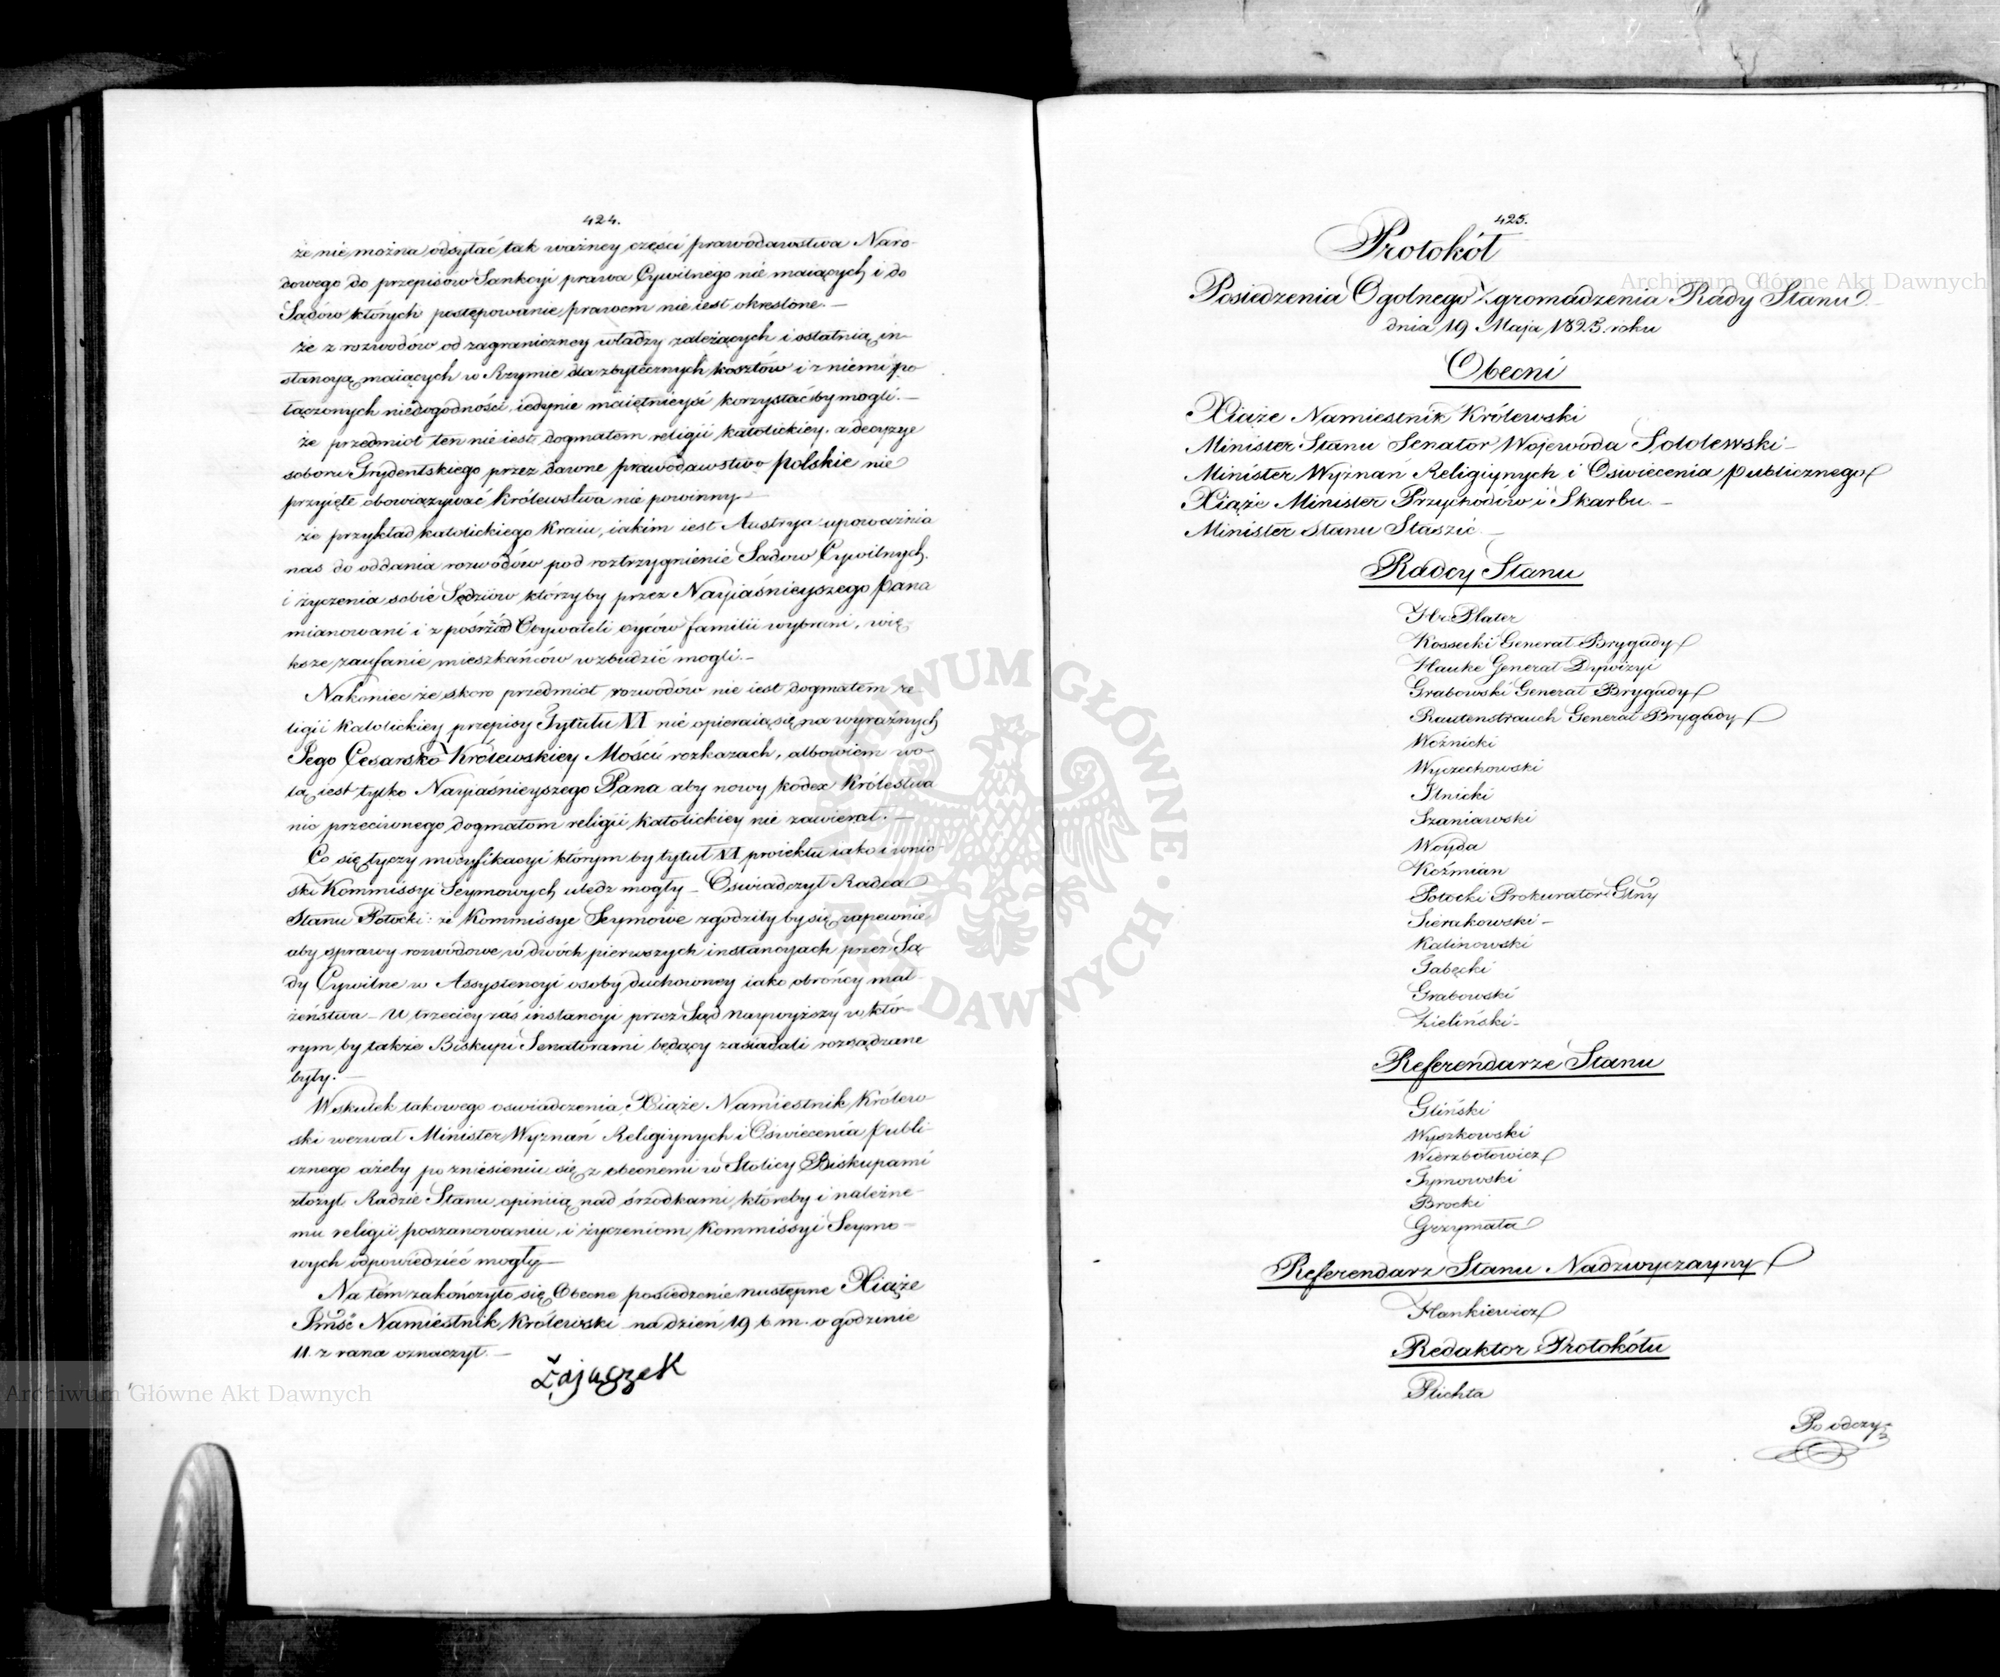 424.
że nie można odsyłać tak ważney części prawodawstwa Naro-
dowego do przepisów Sankcyi prawa Cywilnego nie maiących i do
Sądów których postępowanie prawem nie iest określone.—
że z rozwodów od zagraniczney władzy zależących i ostatnią in-
stancyą maiących w Rzymie dla zbytecznych kosztów i z niemi po
łączonych niedogodności, iedynie maiętnieysi korzystać by mogli.—
że przedmiot ten nie iest dogmatem religii katolickiey, a decyzye
soboru Trydentskiego przez dawne prawodawstwo polskie nie
przyięte obowiązywać Królewstwa nie powinny.—
że przykład katolickiego kraiu, iakim iest Austrya upoważnia
nas do oddania rozwodów pod roztrzygnienie Sadow Cywilnych.
i życzenia sobie Sędziow którzyby przez Nayiaśnieyszego Pana
mianowani i z pośrzód Obywateli oyców familii wybrani, wię-
ksze zaufanie mieszkańców wzbudzić mogli.—
Nakoniec że skoro przedmiot rozwodów nie iest dogmatem re-
ligii katolickiey przepisy Tytułu VI nie opieraią się na wyraźnych
Jego Cesarsko-Królewskiey Mości rozkazach, albowiem wo-
lą iest tylko Nayiaśnieyszego Pana aby nowy kodex Królestwa
nic przeciwnego dogmatom religii katolickiey nie zawierał.—
Co się tyczy modyfikacyi którym by tytuł VI proiektu iako i wnio-
ski Kommissyi Seymowych uledz mogły — Oświadczył Radca
Stanu Potocki: że Kommissye Seymowe zgodziły by się zapewnie,
aby sprawy rozwodowe, w dwóch pierwszych instancyach przez Są-
dy Cywilne w Assystencyi osoby duchowney iako obrońcy mał-
żeństwa — W trzeciey zaś instancyi przez Sąd naywyższy w któ-
rym by także Biskupi Senatorami będący zasiadali rozsądzane
były.—
Wskutek takowego oswiadczenia, Xiąże Namiestnik Królew-
ski wezwał Minister Wyznań Religiynych i Oświecenia Publi-
cznego ażeby po zniesieniu się z obecnemi w Stolicy Biskupami
złożył Radzie Stanu opinią nad śrzodkami, któreby i należne-
mu religii poszanowaniu, i życzeniom Kommissyi Seymo-
wych odpowiedzieć mogły.—
Na tém zakończyło się Obecne posiedzenie następne Xiąże
Jmść Namiestnik Królewski na dzień 19 b m. o godzinie
11. z rana oznaczył.—
Zajączek
425.
Protokół
Posiedzenia Ogolnego Zgromadzenia Rady Stanu
dnia 19 Maja 1823. roku
Obecni
Xiąże Namiestnik Królewski
Minister Stanu Senator Wojewoda Sobolewski —
Minister Wyznań Religiynych i Oświecenia publicznego
Xiąże Minister Przychodów i Skarbu.—
Minister Stanu Staszic.—
Radcy Stanu
Hr: Plater
Kossecki Generał Brygady
Hauke Generał Dywizyi
Grabowski Generał Brygady
Rautenstrauch Generał Brygady
Woźnicki
Wyczechowski
Ilnicki
Szaniawski
Woyda
Koźmian
Potocki Prokurator Glny
Sierakowski —
Kalinowski
Gabęcki
Grabowski
Zieliński —
Referendarze Stanu
Gliński
Wyszkowski
Wierzbołowicz
Tymowski
Brocki
Grzymała
Referendarz Stanu Nadzwyczayny
Hankiewicz
Redaktor Protokółu
Plichta
Po odczy-
Archiwum Główne Akt Dawnych
Archiwum Główne Akt Dawnych
ARCHIWUM GŁÓWNE AKT DAWNYCH